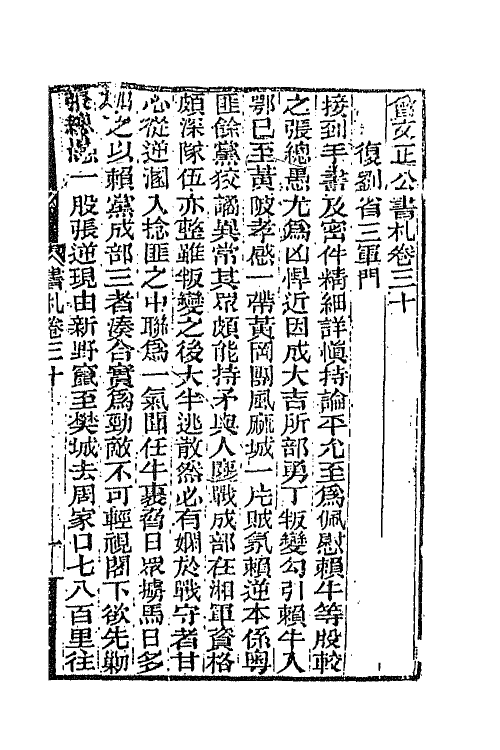 曾文正公書札卷三十
復劉省三軍門
接到手書及密件精細詳愼持論平允至爲佩慰賴牛等股較
之張總愚尤爲凶悍近因成大吉所部勇丁叛變勾引賴牛入
鄂已至黃陂孝感一帶黃岡關風麻城一片賊氛賴逆本係粵
匪餘黨狡譎異常其眾頗能持矛與人鏖戰成部在湘軍資格
頗深隊伍亦整雖叛變之後大半逃散然必有嫻於戰守者甘
心從逆溷入捻匪之中聯爲一氣聞任牛裹脅日眾擄馬日多
加之以賴黨成部三者湊合實爲勁敵不可輕視閣下欲先勦
張總愚一股張逆現由新野竄至樊城去周家口七八百里往
書札卷三十
一